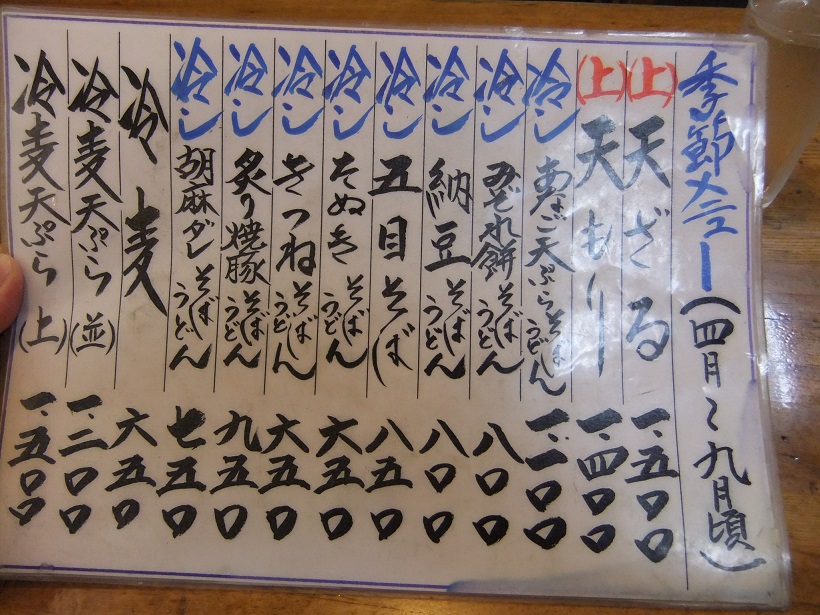 季節メニュー(四月～九月頃)
(上)天ざる 一、五〇〇
(上)天もりー 一、四〇〇
冷し あなご天ぷら そば うどん 一、一〇〇
冷し みぞれ餅 そば うどん 八〇〇
冷し 納豆 そば うどん 八〇〇
冷し 五目そば 八五〇
冷し たぬき そば うどん 六五〇
冷し きつね そば うどん 六五〇
冷し 炙り焼豚 そば うどん 九五〇
冷し 胡麻ダレ そば うどん 七五〇
冷麦 六五〇
冷麦天ぷら(並) 一、三〇〇
冷麦天ぷら(上) 一、五〇〇